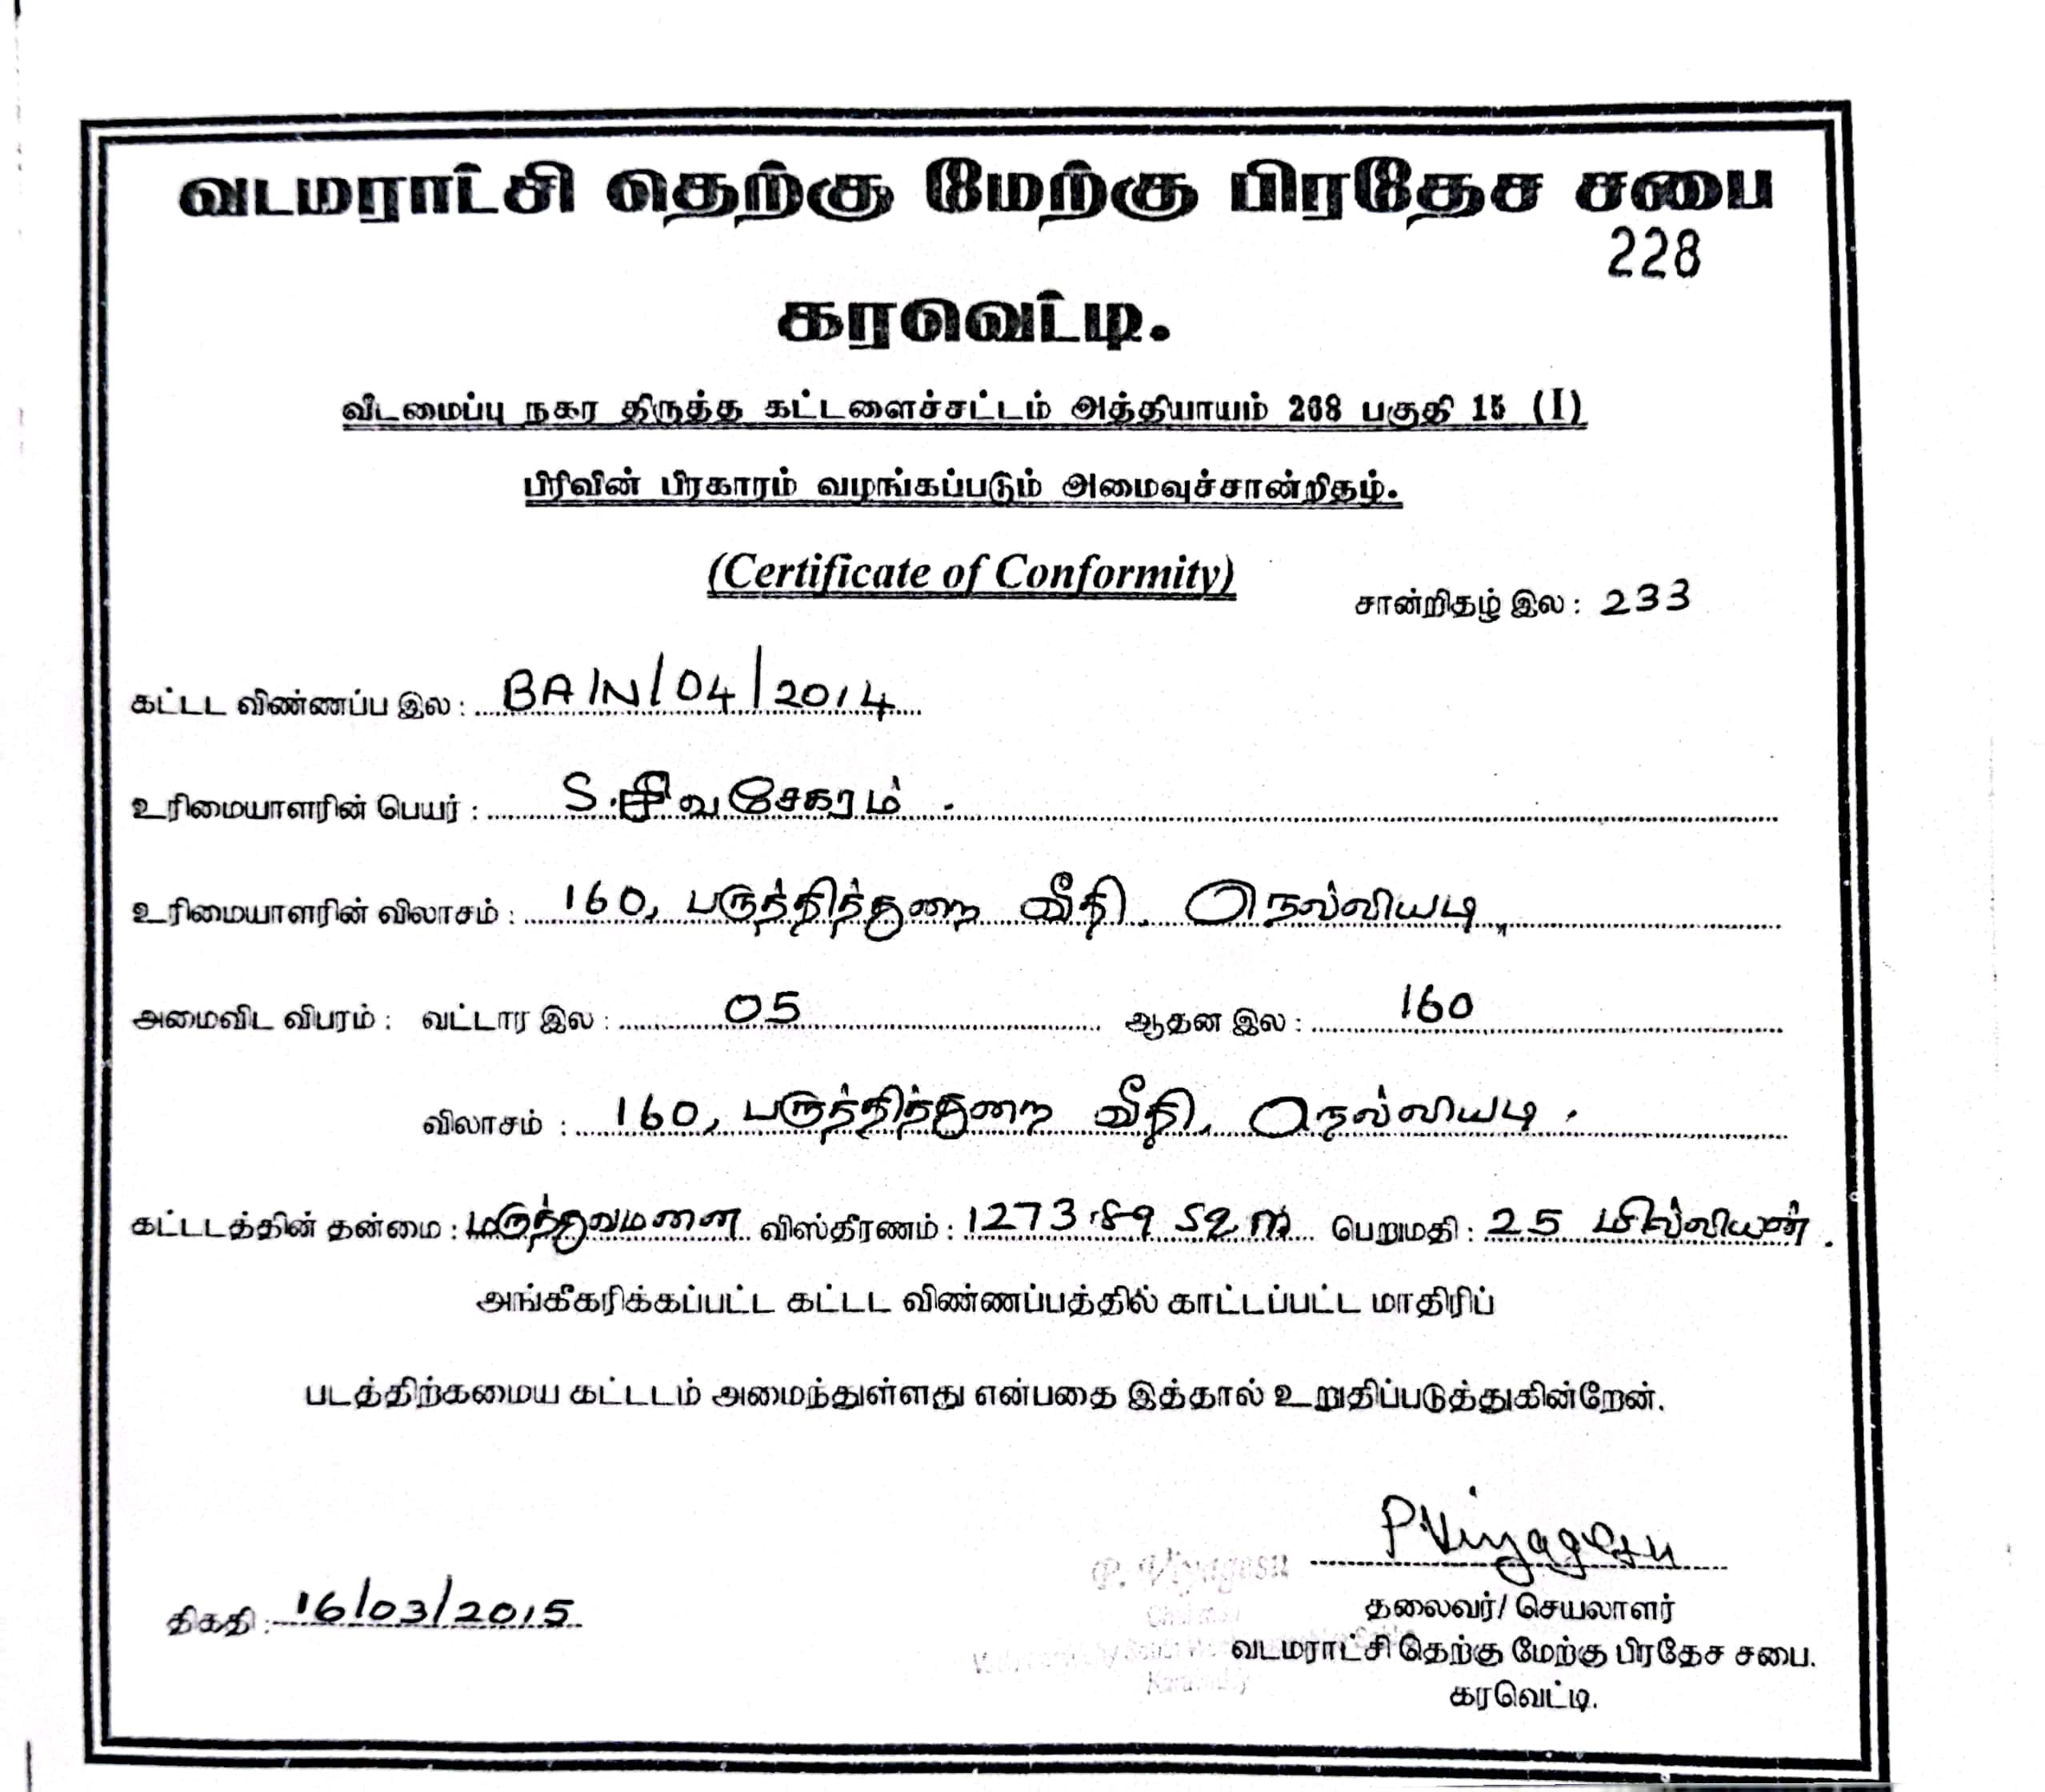 வடமராட்சி தெற்கு மேற்கு பிரதேச சபை
228
கரவெட்டி.
வீடமைப்பு நகர திருத்த கட்டளைச்சட்டம் அத்தியாயம் 268 பகுதி 15 (I)
பிரிவின் பிரகாரம் வழங்கப்படும் அமைவுச்சான்றிதழ்.
(Certificate of Conformity)
சான்றிதழ் இல : 233
கட்டட விண்ணப்ப இல : BA/N/04/2014
உரிமையாளரின் பெயர் : S. சிவசேகரம்.
உரிமையாளரின் விலாசம் : 160, பருத்தித்துறை வீதி, நெல்லியடி
அமைவிட விபரம் : வட்டார இல : 05 ஆதன இல : 160
விலாசம் : 160, பருத்தித்துறை வீதி, நெல்லியடி.
கட்டடத்தின் தன்மை : மருத்துவமனை விஸ்தீரணம் : 1273.89 sq.m பெறுமதி : 25 மில்லியன்.
அங்கீகரிக்கப்பட்ட கட்டட விண்ணப்பத்தில் காட்டப்பட்ட மாதிரிப்
படத்திற்கமைய கட்டடம் அமைந்துள்ளது என்பதை இத்தால் உறுதிப்படுத்துகின்றேன்.
P. Viyagesu
P. Viyagesu
Chairman
திகதி : 16/03/2015
தலைவர்/ செயலாளர்
வடமராட்சி தெற்கு மேற்கு பிரதேச சபை.
கரவெட்டி.